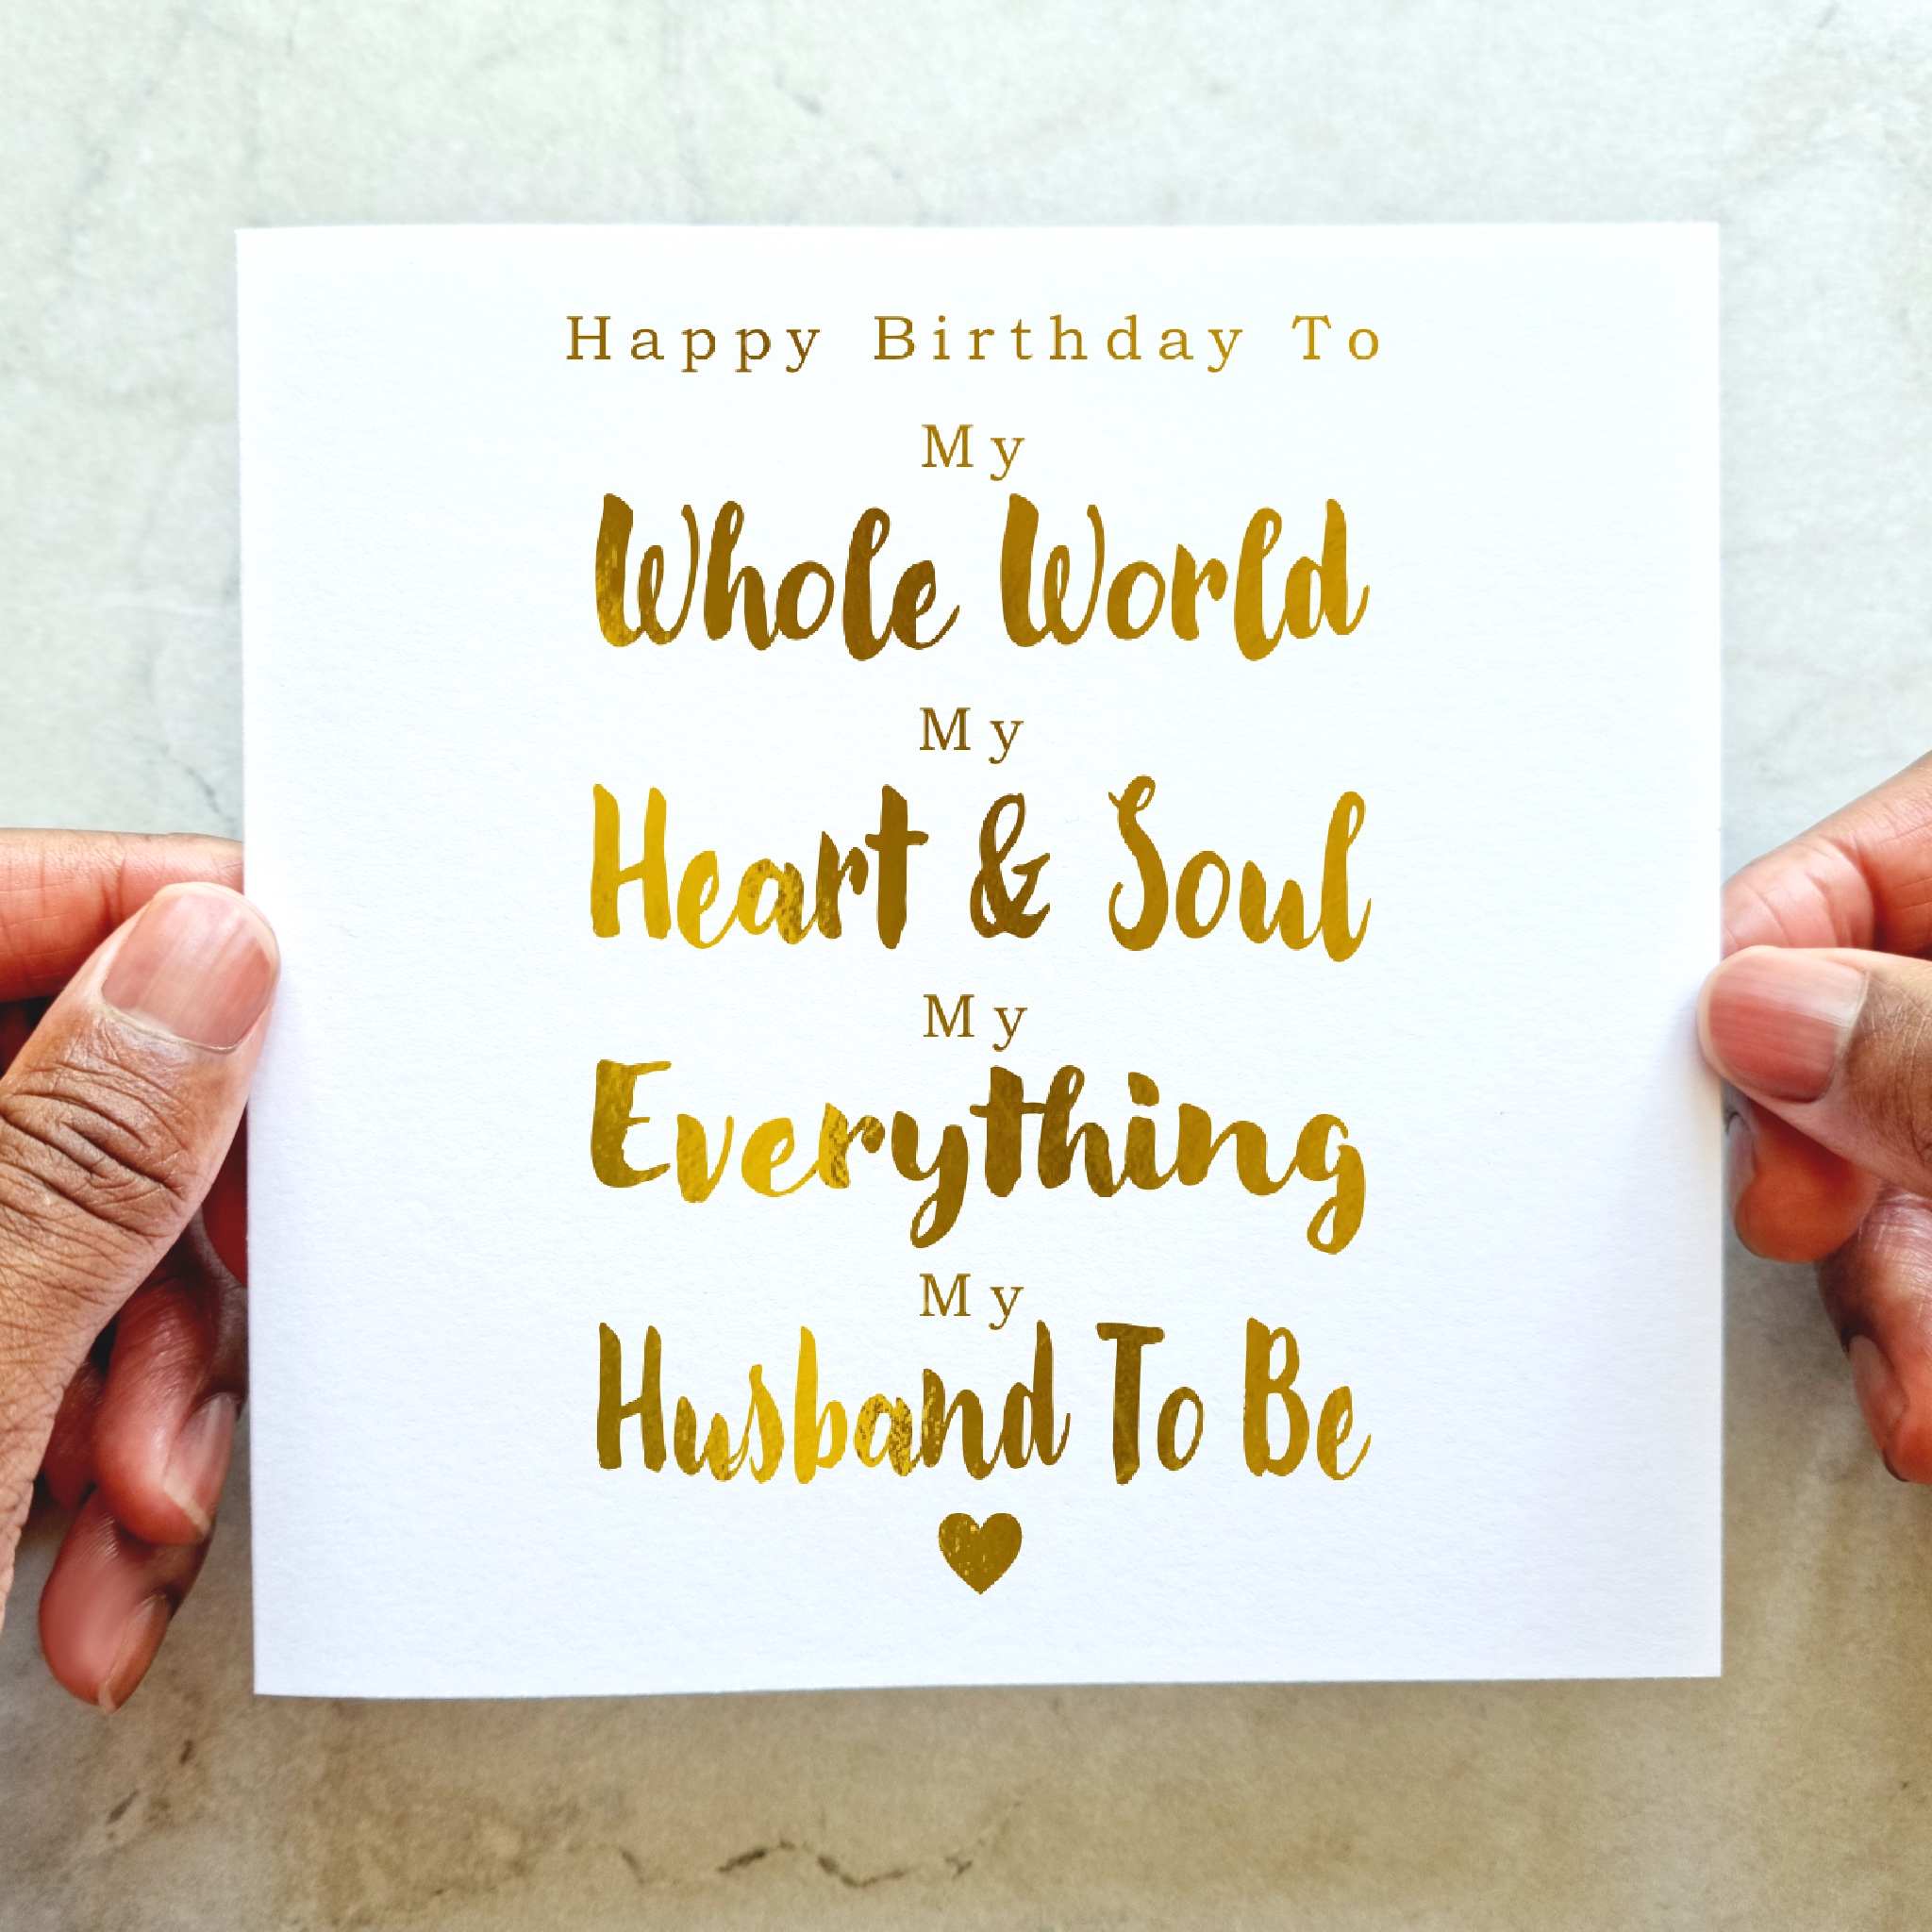 Happy Birthday To
My
Whole World
My
Heart & Soul
My
Everything
My
Husband To Be